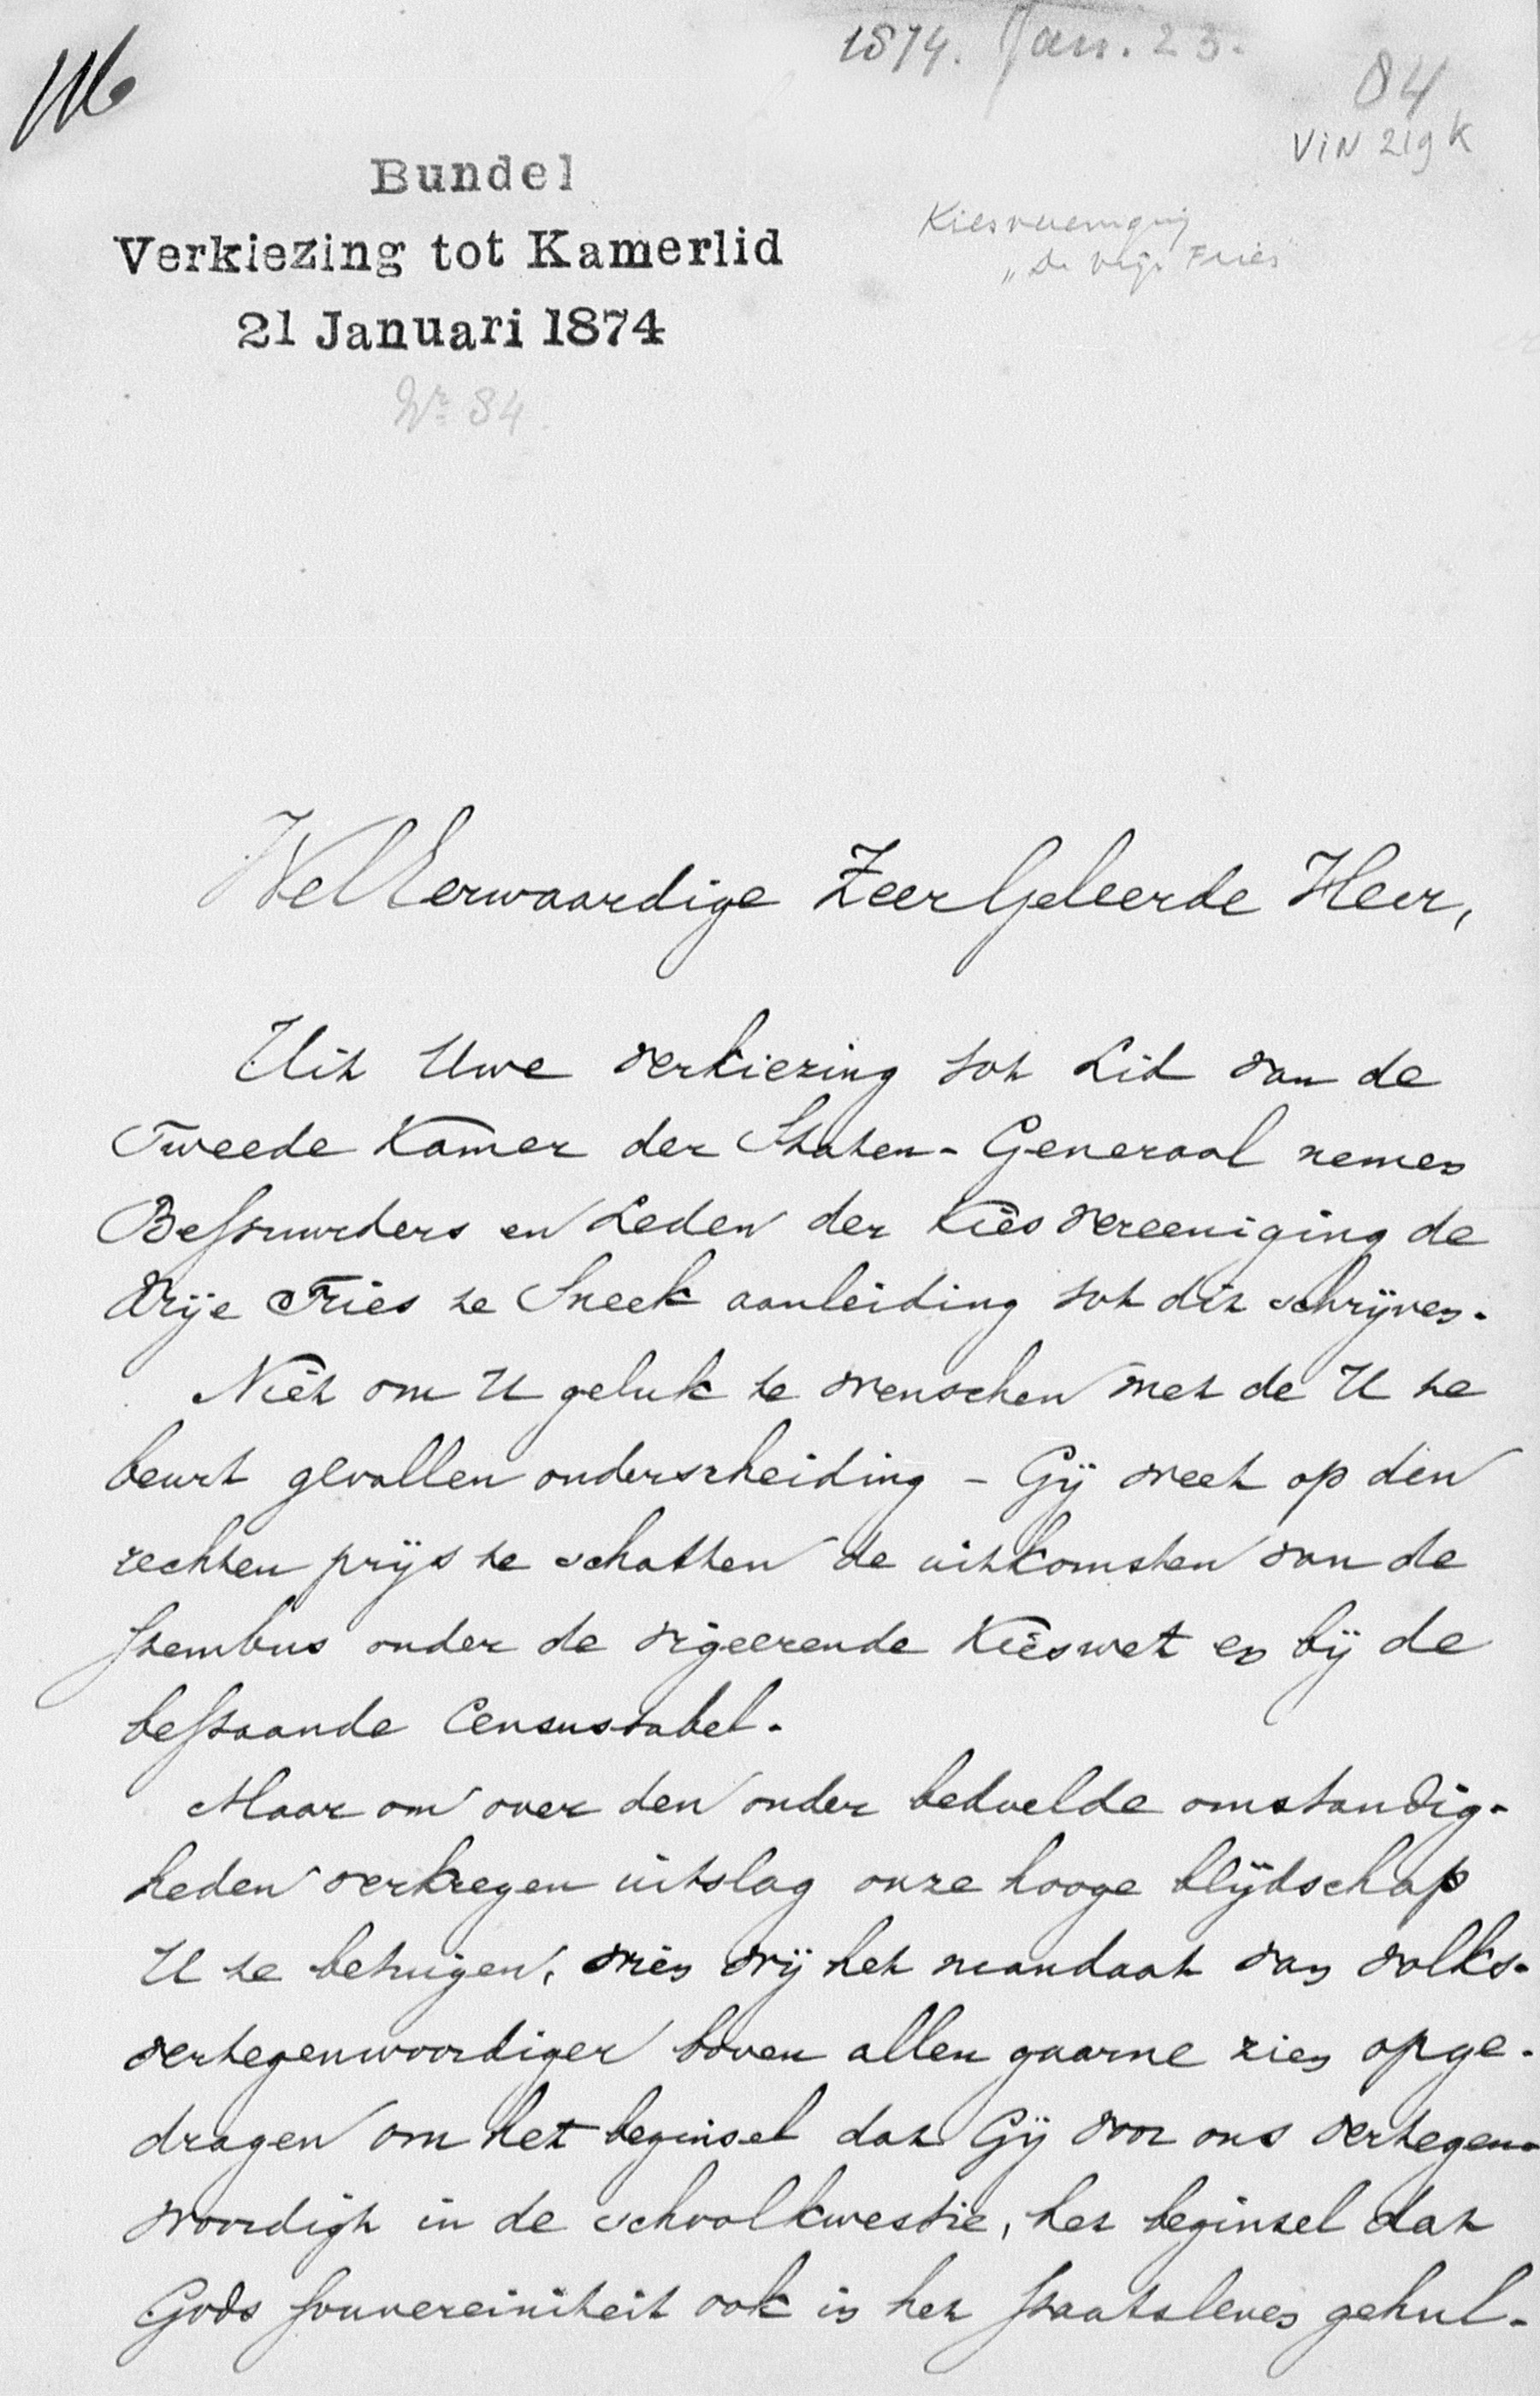 1874. Jan. 23.
84
VIN 219 K
Bundel
Verkiezing tot Kamerlid
21 Januari 1874
Nr 84
Kiesvereeniging
"De Vrije Fries"
WelEerwaardige ZeerGeleerde Heer,
Uit Uwe verkiezing tot Lid van de
Tweede Kamer der Staten-Generaal nemen
Bestuurders en Leden der Kiesvereeniging de
Vrije Fries te Sneek aanleiding tot dit schrijven.
Niet om U geluk te wenschen met de U te
beurt gevallen onderscheiding – Gij weet op den
rechten prijs te schatten de uitkomsten van de
stembus onder de vigeerende Kieswet en bij de
bestaande Censustabel.
Maar om over den onder bedoelde omstandig-
heden verkregen uitslag onze hooge blijdschap
U te betuigen, wien wij het mandaat van volks-
vertegenwoordiger boven allen gaarne zien opge-
dragen om het beginsel dat Gij voor ons vertegen-
woordigt in de schoolkwestie, het beginsel dat
Gods souvereiniteit ook in het staatsleven gehul-